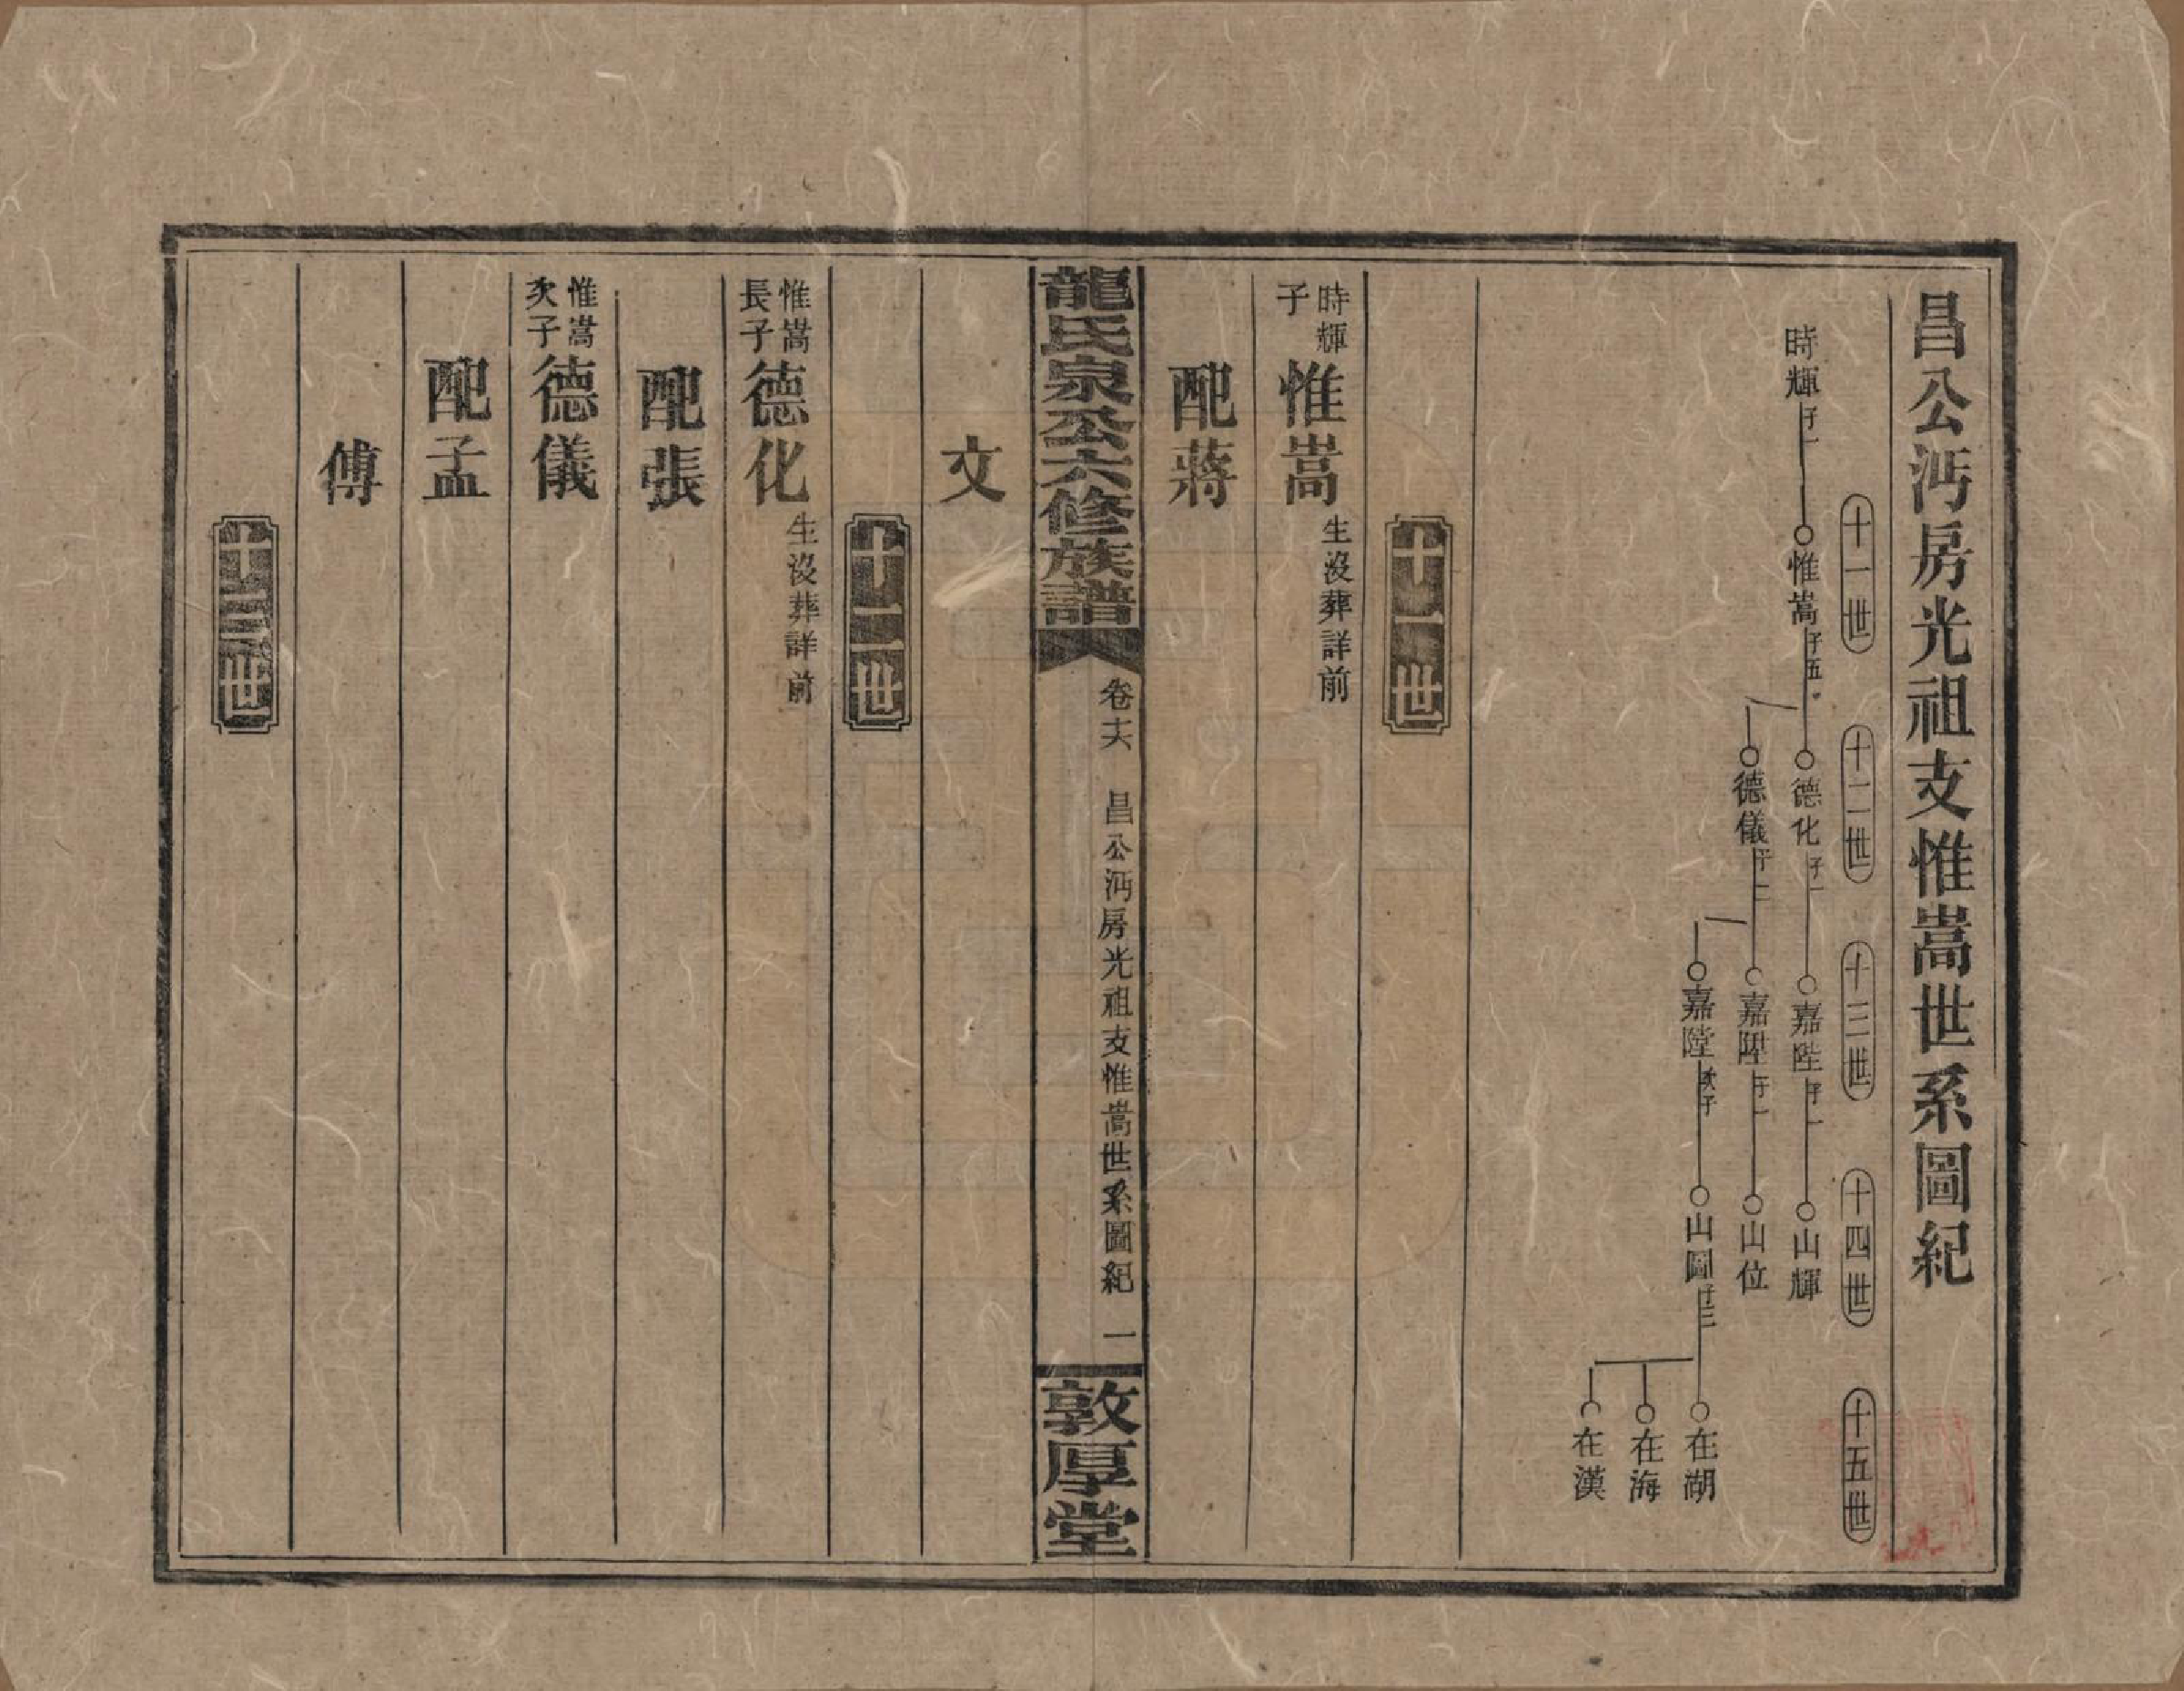 昌公沔房光祖支惟嵩世系圖紀
十一世
十二世
十三世
十四世
十五世
時輝子一
惟嵩子五
德化子一
嘉陞子一
山輝
德儀子二
嘉陧子一
山位
嘉陞次子
山圖子三
在湖
在海
在漢
十一世
時輝子
惟嵩
生沒葬詳前
配蔣
龍氏泉公六修族譜
卷十六
昌公沔房光祖支惟嵩世系圖紀
一
敦厚堂
文
十二世
惟嵩長子
德化
生沒葬詳前
配張
惟嵩次子
德儀
配孟
傅
十三世